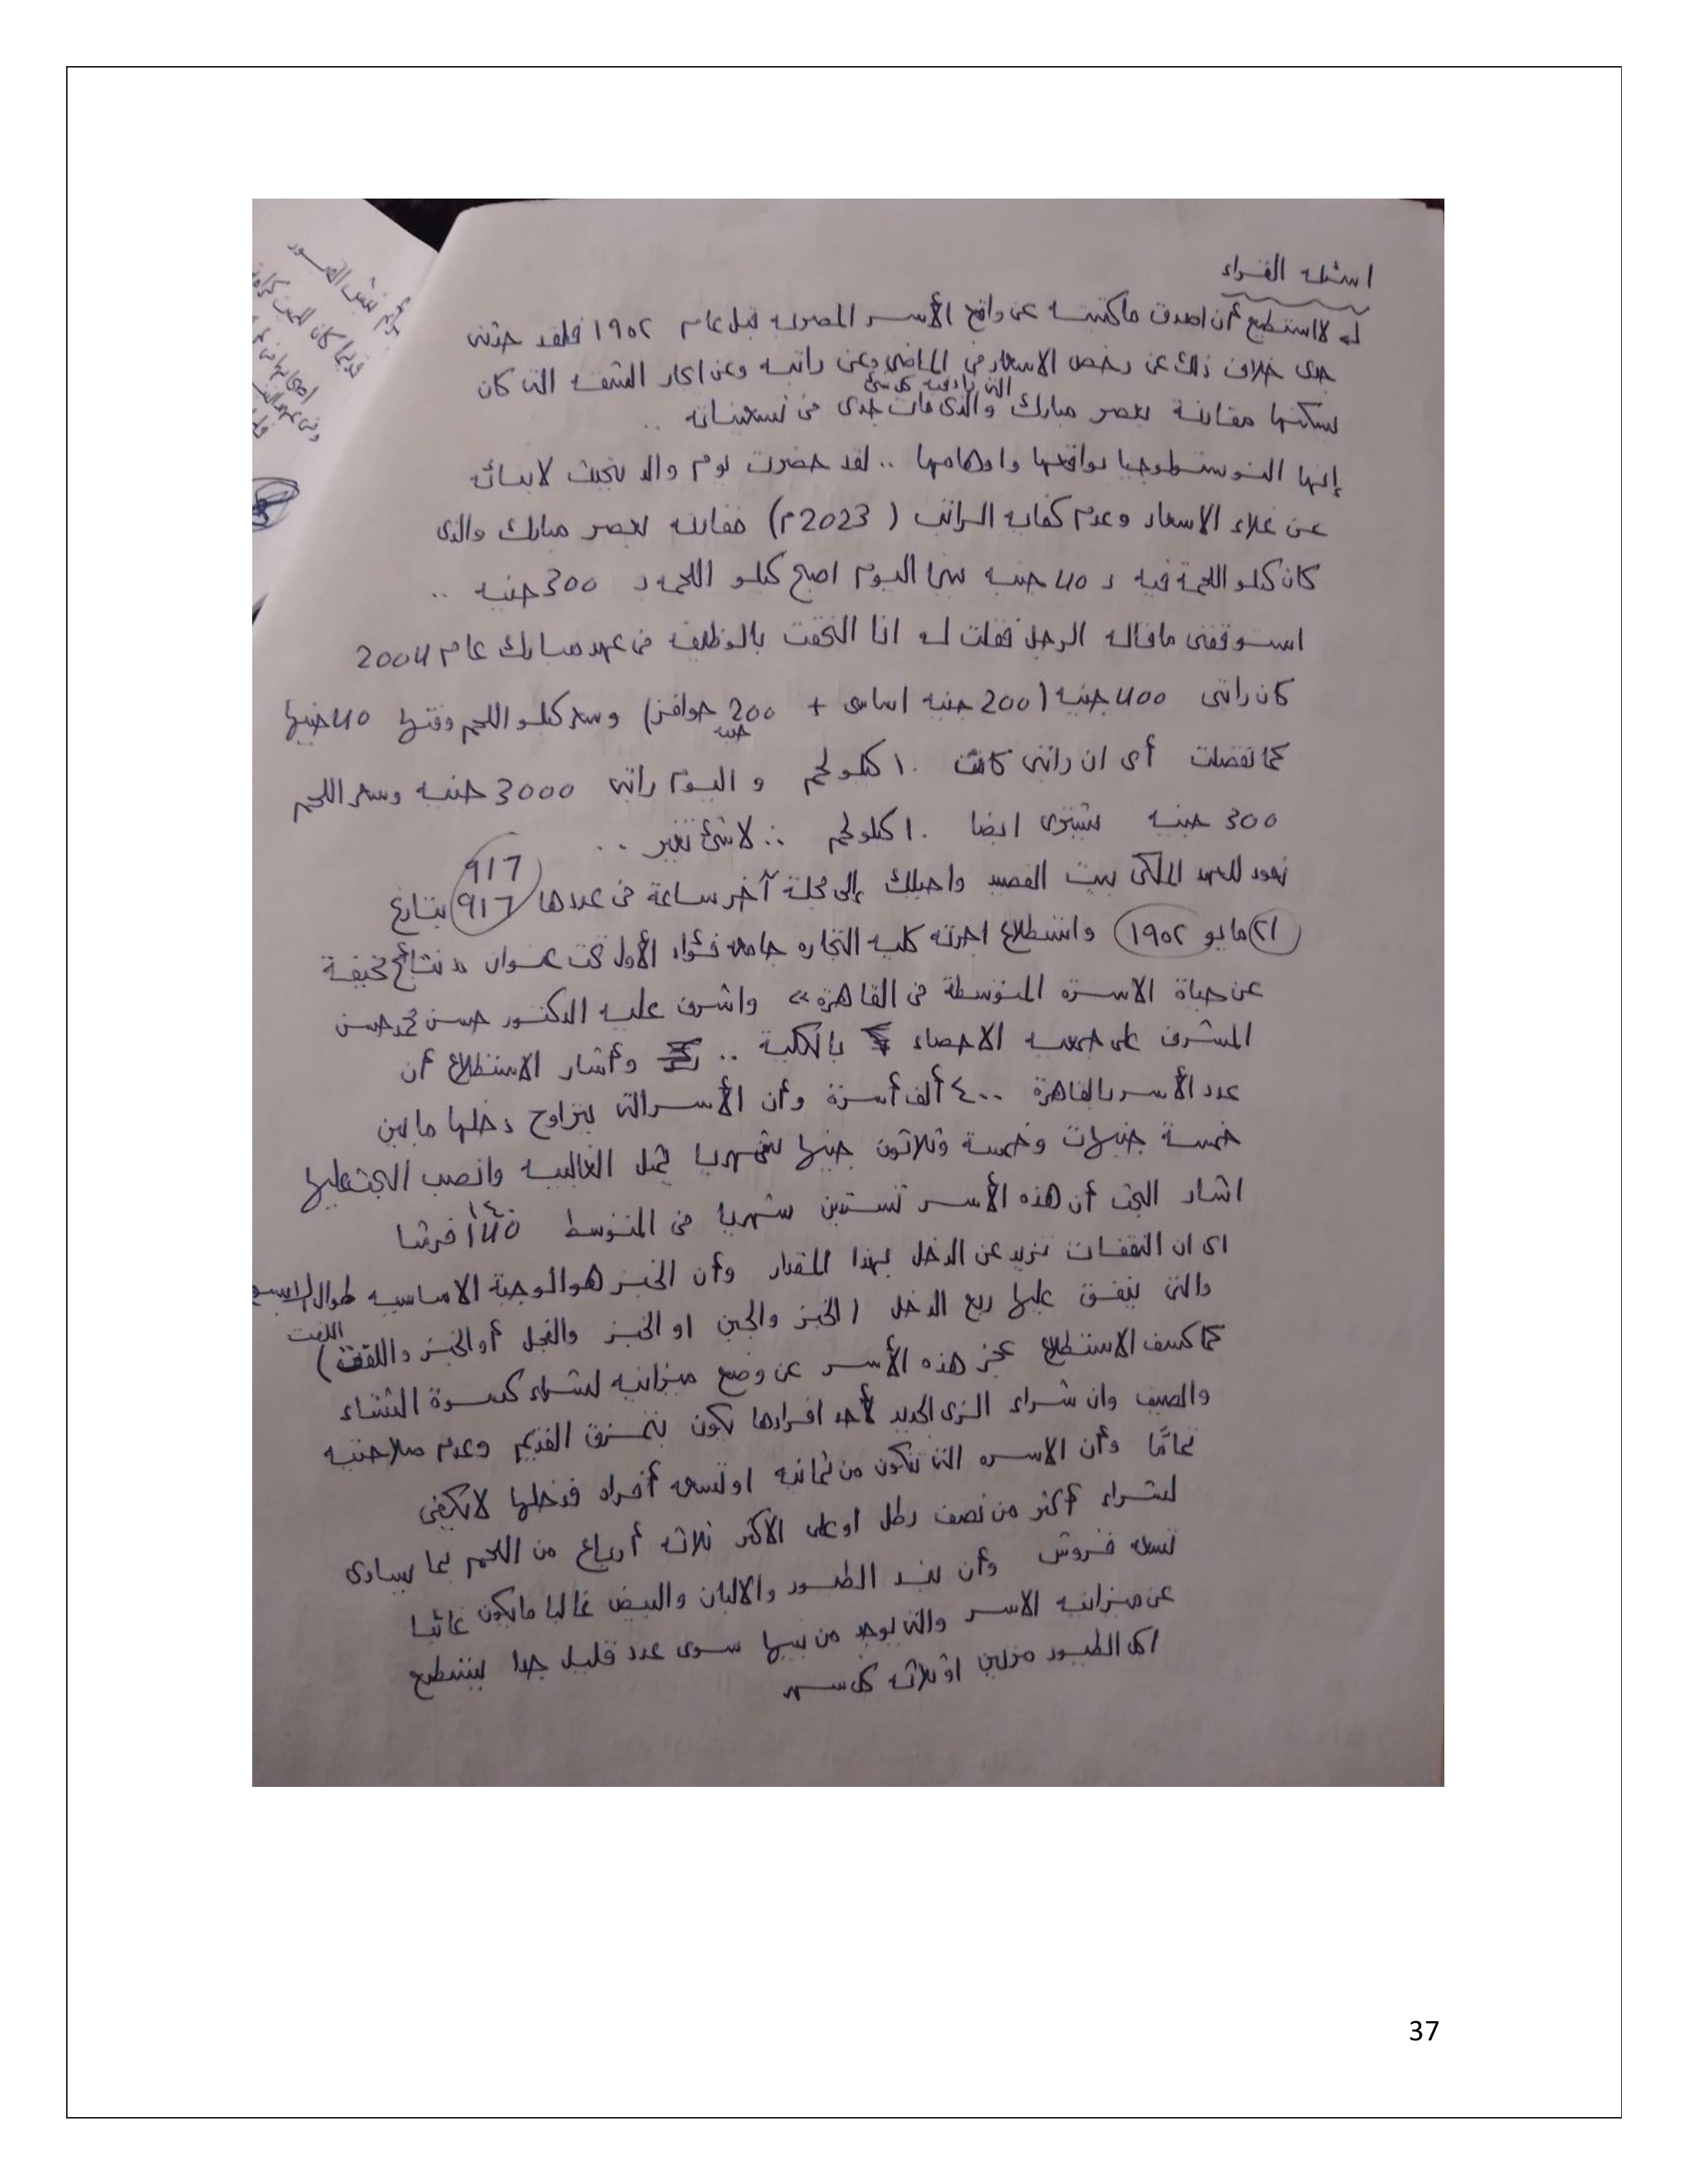 اسئلة القراء
لا استطيع أن اصدق ما كتبته عن واقع الأسر المصرية قبل عام ١٩٥٢ فلقد حدثنى
جدى خلاف ذلك عن رخص الاسعار فى الماضى وعن راتبه وعن ايجار الشقة التى كان
يسكنها مقارنة بعصر مبارك والذى مات جدى فى تسعيناته ..
إنها النوستالوجيا بواقعها واوهامها .. لقد حضرت يوم والد يتحدث لابنائه
عن غلاء الاسعار وعدم كفاية الراتب ( 2023م) مقارنة بعصر مبارك والذى
كان كيلو اللحمة فيه بـ 40 جنيه بينما اليوم اصبح كيلو اللحمة بـ 300 جنيه ..
استوقفنى ما قاله الرجل فقلت له انا التحقت بالوظيفة فى عهد مبارك عام 2004
كان راتبى 400 جنيه (200 جنيه اساسى + 200 جنيه حوافز) وسعر كيلو اللحم وقتها 40 جنيها
كما تفضلت أى ان راتبى كانت ١٠ كيلو لحم و اليوم راتبى 3000 جنيه وسعر اللحم
300 جنيه يشترى ايضا ١٠ كيلو لحم ∴ لا شئ تغير ..
917
نعود للعهد الملكى بيت القصيد واحيلك إلى مجلة آخر ساعة فى عددها 917 بتاريخ
٢١ مايو ١٩٥٢ واستطلاع اجرته كلية التجاره جامعة فؤاد الأول تحت عنوان « نتائج مخيفة
عن حياة الاسرة المتوسطة فى القاهرة » واشرف عليه الدكتور حسن محمد حسن
المشرف على جمعية الاحصاء بالكلية .. وأشار الاستطلاع أن
عدد الأسر بالقاهرة ٤٠٠ ألف أسرة وأن الأسر التى يتراوح دخلها ما بين
خمسة جنيهات وخمسة وثلاثون جنيها شهريا تمثل الغالبية وانصب البحث عليها
اشار البحث أن هذه الأسر تستدين شهريا فى المتوسط ١٤٥ قرشا
اى ان النفقات تزيد عن الدخل بهذا المقدار وأن الخبز هو الوجبة الاساسيه طوال الاسبوع
والتى ينفق عليها ربع الدخل ( الخبز والجبن او الخبز والفجل أو الخبز واللفت)
كما كشف الاستطلاع عجز هذه الأسر عن وضع ميزانيه لشراء كسوة الشتاء
والصيف وان شراء الزى الجديد لأحد افرادها يكون بتمزق القديم وعدم صلاحيته
تمامًا وأن الاسره التى تتكون من ثمانيه او تسعه أفراد فدخلها لا يكفى
لشراء أكثر من نصف رطل او على الاكثر ثلاثة أرباع من اللحم بما يساوى
تسعه قروش وأن بند الطيور والالبان والبيض غالبا ما يكون غائبا
عن ميزانيه الاسر والتى يوجد من بينها سوى عدد قليل جدا يستطيع
اكل الطيور مرتين او ثلاثه كل شهر
37